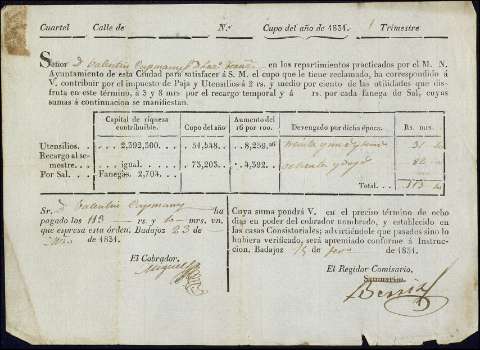 Cuartel Calle de N.º Cupo del año de 1831. 1 Trimestre
Señor D. Valentin en los repartimientos practicados por el M. N.
Ayuntamiento de esta Ciudad para satisfacer á S. M. el cupo que le tiene reclamado, ha correspondido á
V. contribuir por el impuesto de Paja y Utensilios á 2 rs. y medio por ciento de las utilidades que dis-
frutó en este término, á 3 y 8 mrs por el recargo temporal y á rs. por cada fanega de Sal, cuyas
sumas á continuacion se manifiestan.
Capital de riqueza contribuible. Cupo del año Aumento del 16 por 100. Devengado por dicha época. Rs. mrs.
Utensilios. 2,392,500. 51,548. 8,259, treinta y 31
Recargo al se-
mestre. igual. 73,203. 4,592. ochenta y 8
Por Sal. Fanegas. 2,704.
Total. 113
Sr. D. Valentin ha
pagado los 113 rs y mrs. vn.
que espresa esta órden. Badajoz 23 de
de 1831.
El Cobrador.
Miguel
Cuya suma pondrá V. en el preciso término de ocho
dias en poder del cobrador nombrado, y establecido en
las casas Consistoriales; advirtiéndole que pasados sino lo
hubiera verificado, será apremiado conforme á Instruc-
cion. Badajoz 15 de de 1831.
El Regidor Comisario.